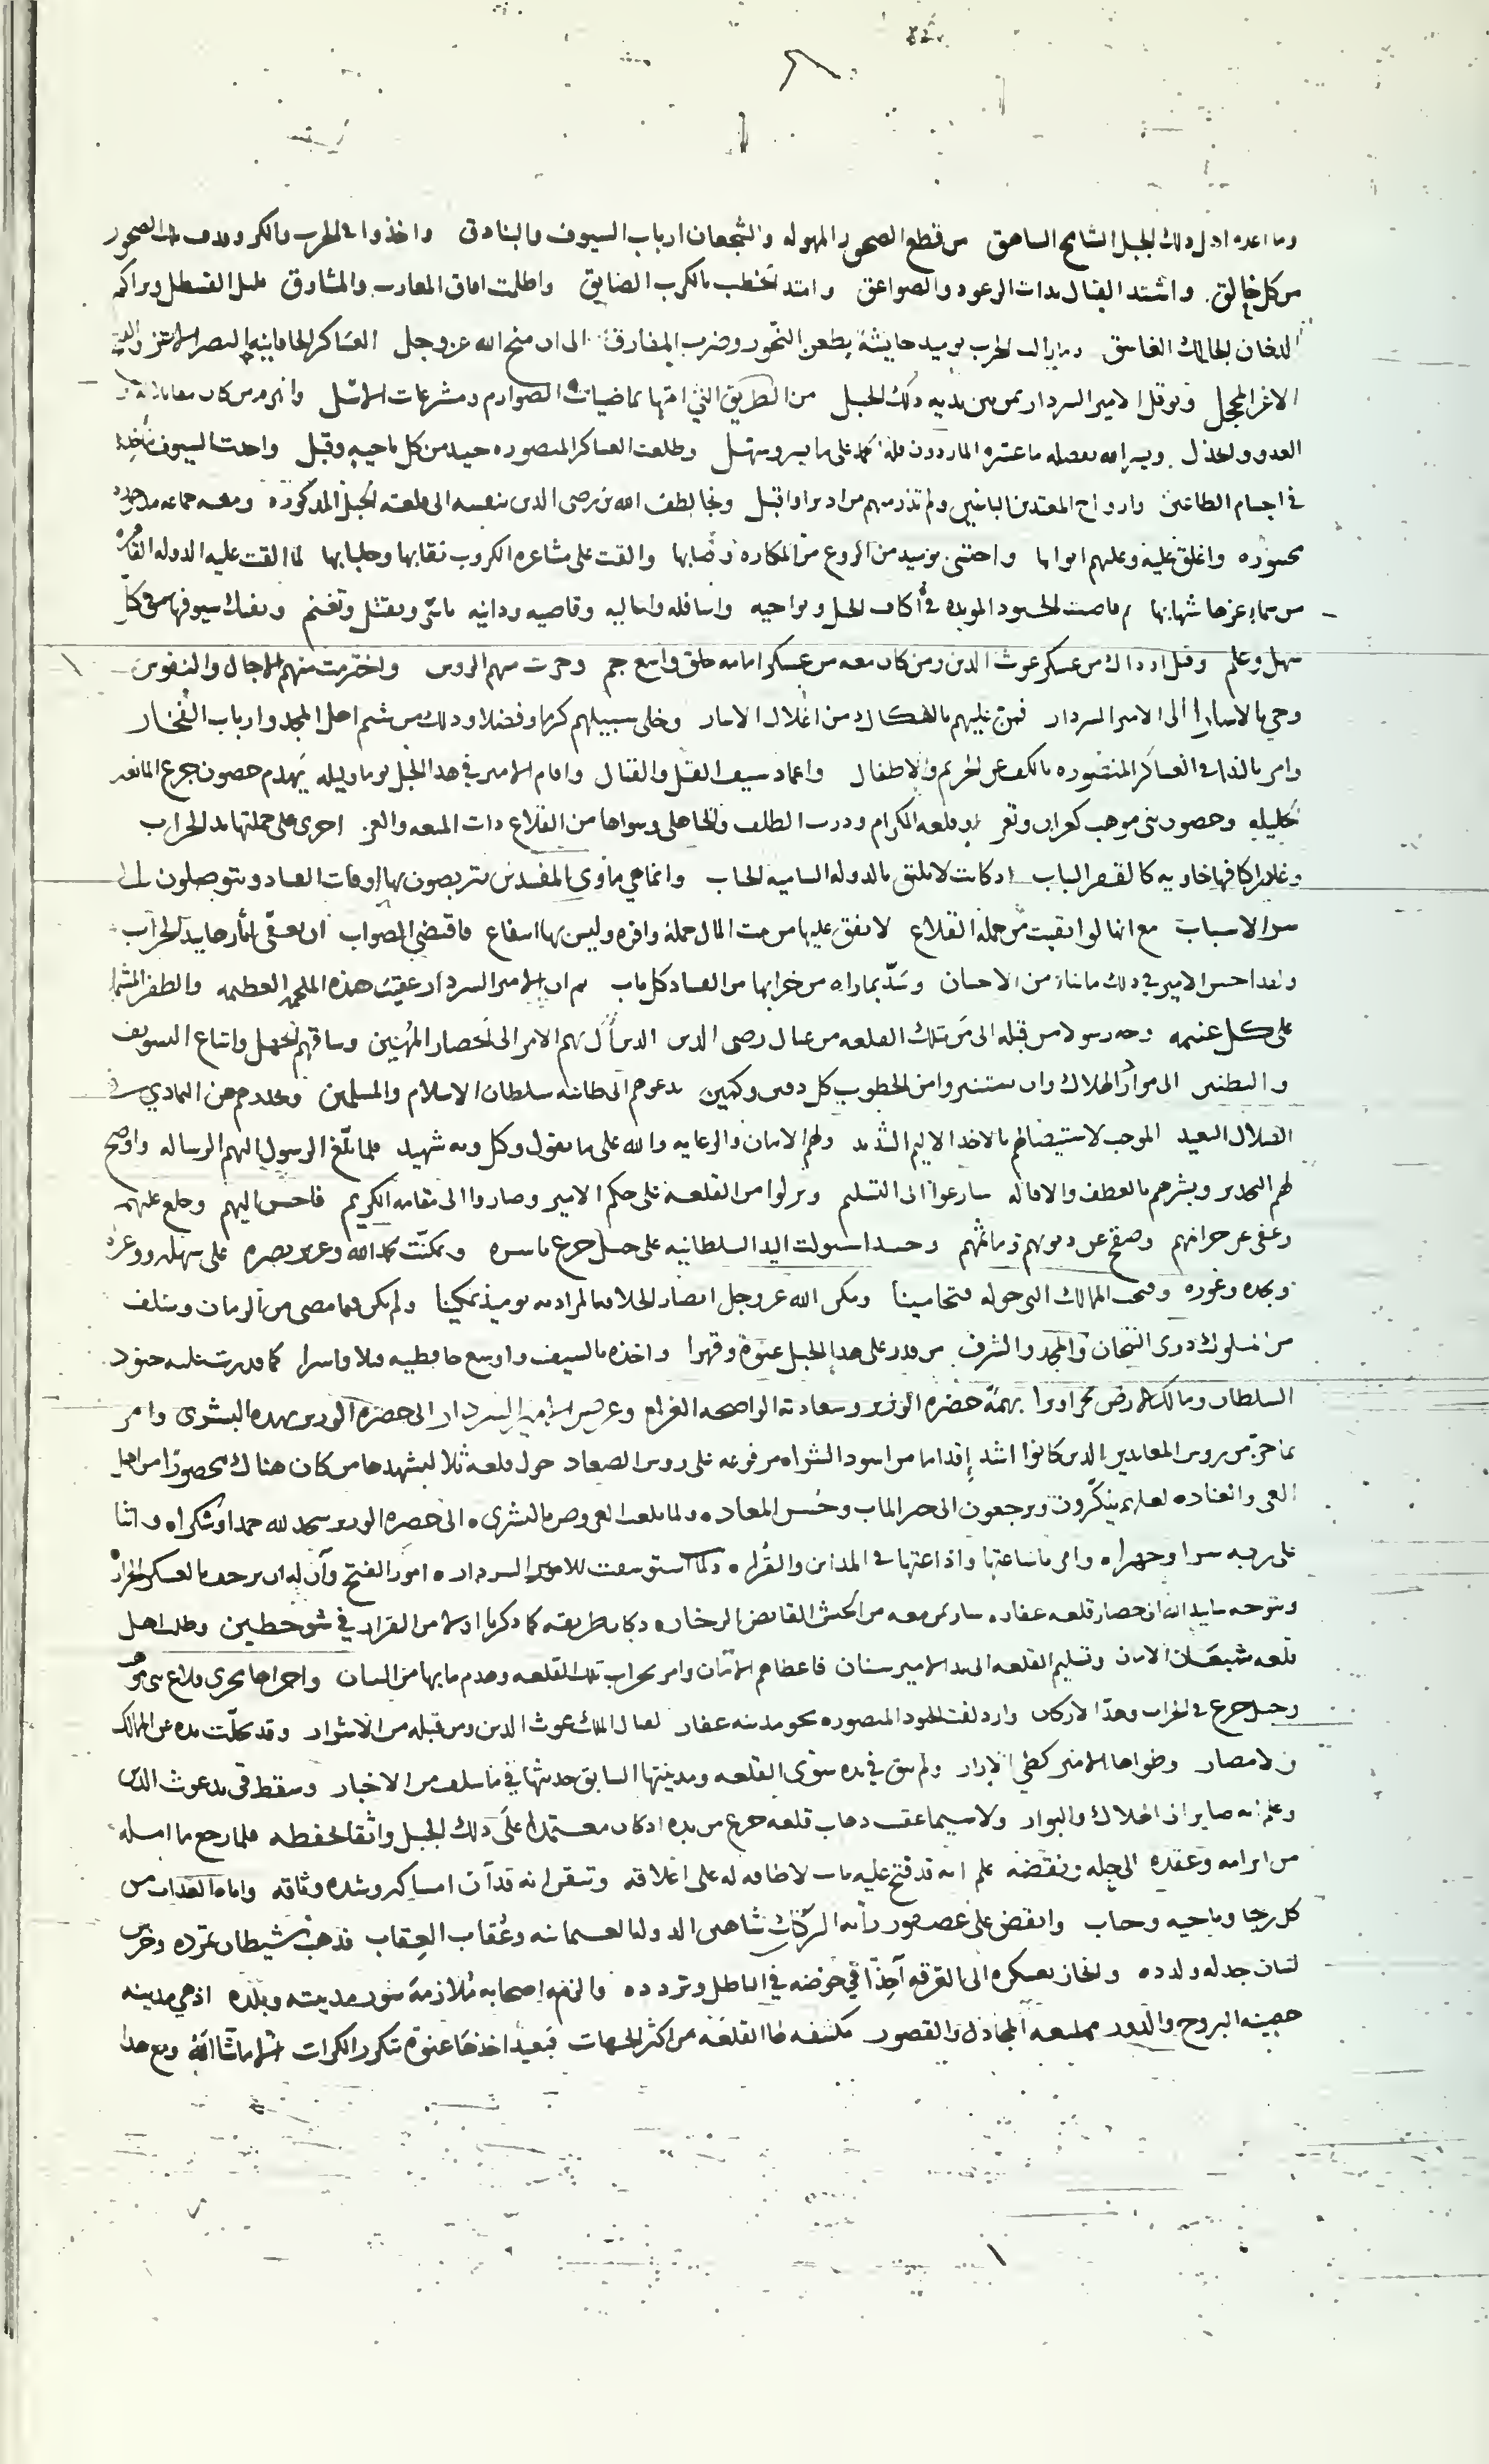 وما اعده اهل ذلك الجبل الشامخ الساهق من قطع الصخور المهوله والشجعان ارباب السيوف والبنادق واخذوا في الحرب بالكر الصخور
من كل خالق واشتد القتال بذات الرعود والصواعق وامتد الخطب بالكرب الضايق واظلمت افاق المغارب والمشارق بليل القسطل وتراكم
الدخان الحالك الغاسق وما زالت الحرب يوميد جايشة بطعن النحور وضرب المفارق الى ان منح الله عز وجل العساكر الخاقانيه النصر الاعز
الاغر المحجل وتوقل الامير السردار بمن بين يديه ذلك الجبل من الطريق التي امتها بماضيات الصوارم ومشرعات الاسل وانهزم من كان
العدو والخذل ويسر الله بفضله ما عسره الماردون فله الحمد على ما يسر وسهل وطلعت العساكر المنصوره حيد من كل ناحيه وقبل واخذت السيوف
في اجسام الطاغين وارواح المعتدين الباغين ولم تذر منهم من ادبر او اقبل ونجا لطف الله بن رضى الدين بنفسه الى قلعته الجبل المذكوره ومعه جماعه
محسوره واغلق عليه وعليهم ابوابها واحتسى يوميد من الروع من المكاره وصابها والقت على مشاعره الكروب نقابها وجلبابها لما القت عليه الدوله القاهره
من سماء عزها شهابها ثم فاضت الجنود المويده في اكناف الجبل ونواحيه واسافله واعاليه وقاصيه ودانيه تاسر وتقتل وتغنم وتفتك سيوفها في كل
سهل وعلم وقتل اذ ذاك من عسكر غوث الدين ومن كان معه من عسكر امامه خلق واسع جم وحزت منهم الروس واخترمت منهم الاجال والنفوس
وجي بالاسارا الى الامير السردار فمن عليهم بالفكاك من اغلال الاسار وخلى سبيلهم كرما وفضلا وذلك من شيم اهل المجد وارباب الفخار
وامر بالندا في العساكر المنصوره بالكف عن الحريم والاطفال واغماد سيف القتل والقتال واقام الامير في هذا الجبل يوما وليله يهدم حصون جرع المانعه
الجليله وحصون بني موهب كعران وقلعه الكرام ودرب الطلف والجاهلي وسواها من القلاع ذات المنعه والعز احرى على جملتها يد الخراب
وغادرها كافها خاويه كالقفر اليباب اذ كانت لا تليق بالدوله الساميه الجناب وانما هي ماوى المفسدين يتربصون بها اوقات الفساد ويتوصلون
سوا الاسباب مع انها لو ابقيت من جملة القلاع لانفق عليها من بيت المال جمله وافره وليس بها انتفاع فاقتضى الصواب ان يعفى اثارها يد الخراب
ولقد احسن الامير في ذلك ما شا من الاحسان وسد بما راه من خرابها من الفساد كل باب ثم ان الامير السردار عقيب هذه الملحمه العظيمه والظفر
على كل غنيمه وجه رسولا من قبله الى من بتلك القلعه من عيال رضى الدين الذين آل بهم الامر الى الحصار المهين وساقهم الجهل واتباع التسويف
والتظنين الى موارد الهلاك وان يستثيروا من الخطوب كل دفين وكمين يدعوهم الى طاعه سلطان الاسلام والمسلمين ويحذرهم من التمادي في
الضلال البعيد الموجب لاستيصالهم بالاخذ الاليم الشديد ولهم الامان والرعايه والله على ما نقول وكيل وبه شهيد فلما بلغ الرسول اليهم الرساله واوضح
لهم التحذير وبشرهم بالعطف والاقاله سارعوا الى التسليم ونزلوا من القلعه على حكم الامير وصاروا الى مقامه الكريم فاحسن اليهم وخلع عليهم
وعفى عن جرائمهم وصفح عن ذنوبهم ومآثمهم وحينيذ استولت اليد السلطانيه على جبل جرع باسره وتمكنت بحمد الله وعزيز نصره على سهله ووعره
ونجده وغوره وفتحت الممالك التي حوله فتحا مبينا ومكن الله عز وجل انصار الخلافه المراديه يوميذ تمكينا ولم يكن فيما مضى من الزمان وسلف
من الملوك ذوى التيجان والمجد والشرف من قدر على هذا الجبل عنوة وقهرا واخذه بالسيف واوسع حافظيه قتلا واسرا كما قدرت عليه جنود
السلطان ومالك الارض بحرا وبرا بهمة حضرة الوزير وسعادته الواضحه الغرا وعرض الامير السردار الى حضرة الوزير بهذه البشرى وامر
بما حز من روس المعاندين الذين كانوا اشد إقداما من اسود الشراه مرفوعه على روس الصعاد حول قلعه ثلا ليشهدها من كان هناك محصورا من اهل
الغي والعناده لعلهم يتذكرون ويرجعون الى خير الماب وحسن المعاده ولما بلغت العروض بالبشرى الى حضرة الوزير سجد لله حمدا وشكرا واثنا
على ربه سرا وجهرا وامر باشاعتها واذاعتها في المداين والقراه ولما استوسقت للامير السردار امور الفتح وآن له ان يرحل بالعسكر الجرار
ويتوجه بتاييد الله الى حصار قلعه عفار سار بمن معه من الجيش الفايض الزخار وكان طريقه كما ذكرنا اولا من القرار في شوحطين وطلب اهل
قلعه شبعان الامان وتسليم القلعه الى يد الامير سنان فاعطاهم الامان وامر بخراب تلك القلعه وهدم ما بها من البنيان واجراها مجرى قلاع بني موهب
وجبل جرع في الخراب وهد الاركان وازدلفت الجنود المنصوره نحو مدينه عفار لقتال الملك غوث الدين ومن قبله من الاشرار وقد خلت يده عن الممالك
والامصار وطواها الامير كطي الازار ولم يبق في يده سوى القلعه ومدينتها السابق حديثها فيما سلف من الاخبار وسقط في يد غوث الدين
وعلم انه صاير الى الهلاك والبوار ولا سيما عقيب ذهاب قلعه جرع من يده اذ كان معتمدا على ذلك الجبل واثقا لحفظه فلما رجع ما امله
من ابرامه وعقده الى حله ونقضه علم انه قد فتح عليه باب لا طاقه له على اغلاقه وتيقن انه قد آن امساكه وشده وثاقه واتاه العذاب من
كل رجا وناحيه وجناب وانقض على عصفور رايه الركاك شاهين الدوله العثمانيه وعقاب العقاب فذهب شيطان تمرده وخرس
لسان جدله ولدده وانحاز بعسكره الى الغرفه آخذا في خوضه في الباطل وتردده والزم اصحابه ملازمة سور مدينته وبلده اذ هي مدينه
حصينه البروج والدور ممتنعه المجادل والقصور مكتنفه لها القلعه من اكثر الجهات فبعيد اخذها عنوة بتكرر الكرات الا ما شا الله ومع هذا